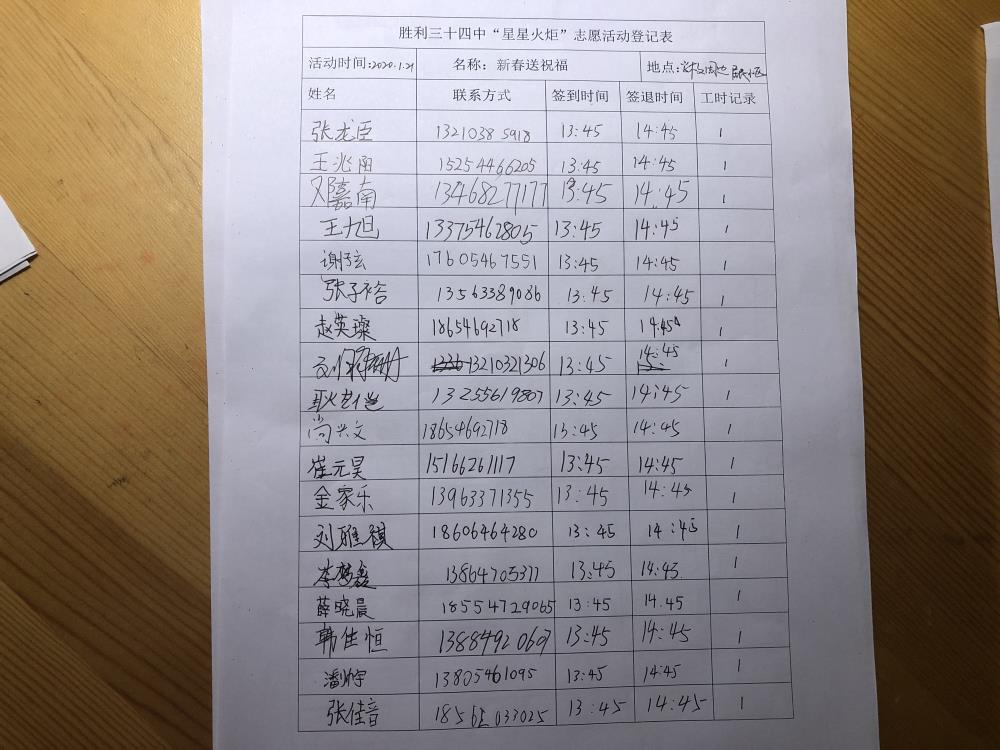 胜利三十四中“星星火炬”志愿活动登记表
活动时间:2020.1.21 名称：新春送祝福 地点:
姓名 联系方式 签到时间 签退时间 工时记录
张龙臣 13210385918 13:45 14:45 1
王兆雨 15254466205 13:45 14:45 1
邓嘉南 13468277177 13:45 14:45 1
王旭 13375462805 13:45 14:45 1
谢弦 17605467551 13:45 14:45 1
张子裕 13563389086 13:45 14:45 1
赵英璨 18654692718 13:45 14:45 1
13210321306 13:45 14:45 1
耿 13255619807 13:45 14:45 1
尚兴文 18654692718 13:45 14:45 1
崔元昊 15166261117 13:45 14:45 1
金家乐 13963371355 13:45 14:45 1
刘雅祺 18606464280 13:45 14:45 1
李梦鑫 13864705377 13:45 14:45 1
薛晓晨 18554729065 13:45 14.45 1
韩佳恒 13884920607 13:45 14:45 1
潘 13805461095 13:45 14:45 1
张佳音 13:45 14:45 1